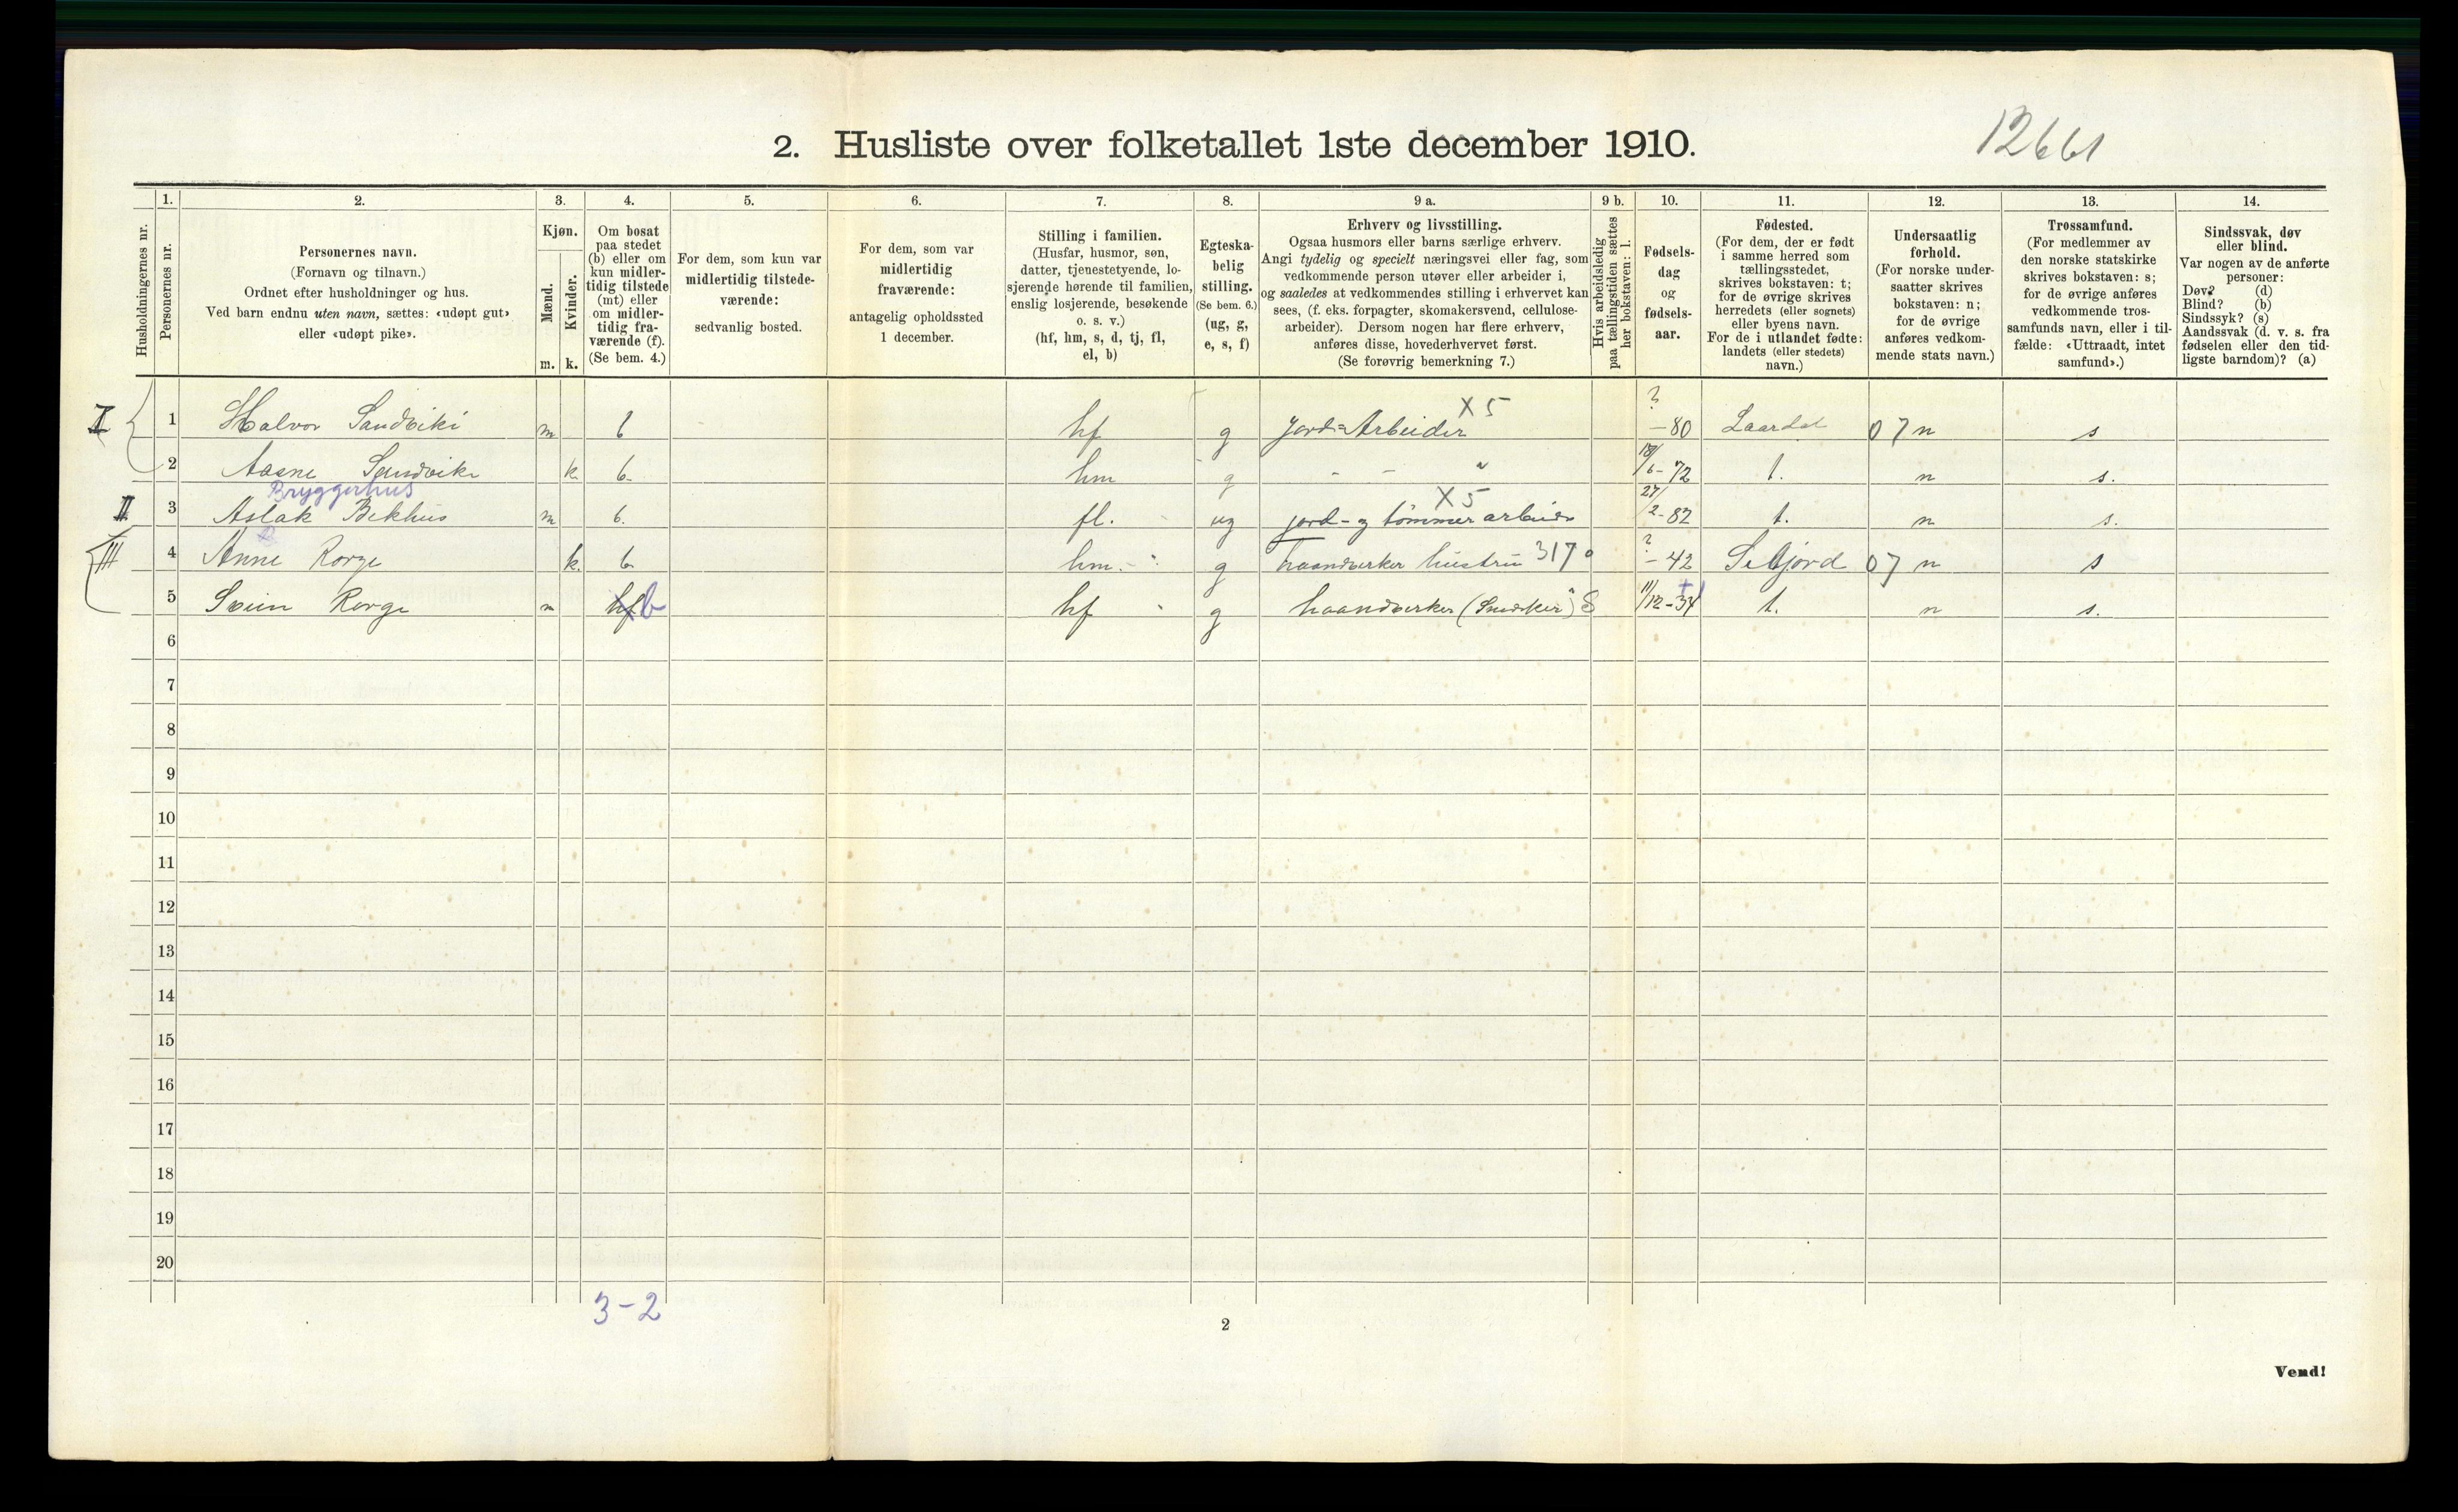 2. Husliste over folketallet 1ste december 1910.
12661
Husholdningernes nr.
1.
Personernes nr.
2.
Personernes navn.
(Fornavn og tilnavn.)
Ordnet efter husholdninger og hus.
Ved barn endnu uten navn, sættes: «udøpt gut»
eller «udøpt pike».
3.
Kjøn.
Mænd.
m.
Kvinder.
k.
4.
Om bosat
paa stedet
(b) eller om
kun midler-
tidig tilstede
(mt) eller
om midler-
tidig fra-
værende (f).
(Se bem. 4.)
5.
For dem, som kun var
midlertidig tilstede-
værende:
sedvanlig bosted.
6.
For dem, som var
midlertidig
fraværende:
antagelig opholdssted
1 december.
7.
Stilling i familien.
(Husfar, husmor, søn,
datter, tjenestetyende, lo-
sjerende hørende til familien,
enslig losjerende, besøkende
o. s. v.)
(hf, hm, s, d, tj, fl,
el, b)
8.
Egteska-
belig
stilling.
(Se bem. 6.)
(ug, g,
e, s, f)
9 a.
Erhverv og livsstilling.
Ogsaa husmors eller barns særlige erhverv.
Angi tydelig og specielt næringsvei eller fag, som
vedkommende person utøver eller arbeider i,
og saaledes at vedkommendes stilling i erhvervet kan
sees, (f. eks. forpagter, skomakersvend, cellulose-
arbeider). Dersom nogen har flere erhverv,
anføres disse, hovederhvervet først.
(Se forøvrig bemerkning 7.)
9 b.
Hvis arbeidsledig
paa tællingstiden sættes
her bokstaven: l.
10.
Fødsels-
dag
og
fødsels-
aar.
11.
Fødested.
(For dem, der er født
i samme herred som
tællingsstedet,
skrives bokstaven: t;
for de øvrige skrives
herredets (eller sognets)
eller byens navn.
For de i utlandet fødte:
landets (eller stedets)
navn.)
12.
Undersaatlig
forhold.
(For norske under-
saatter skrives
bokstaven: n;
for de øvrige
anføres vedkom-
mende stats navn.)
13.
Trossamfund.
(For medlemmer av
den norske statskirke
skrives bokstaven: s;
for de øvrige anføres
vedkommende tros-
samfunds navn, eller i til-
fælde: «Uttraadt, intet
samfund».)
14.
Sindssvak, døv
eller blind.
Var nogen av de anførte
personer:
Døv? (d)
Blind? (b)
Sindssyk? (s)
Aandssvak (d. v. s. fra
fødselen eller den tid-
ligste barndom)? (a)
X 5 ?
I 1 Halvor Sandviki m b hf g Jord-Arbeider -80 Laardal 07 n s
2 Aasne Sandvik k b. hm g - - " 18/6-72 t. n s.
Bryggerhus X 5
II 3 Aslak Bekhus m b. fl. ug jord- og tømmerarbeider 27/2-82 t. n s.
III 4 Anne Rorge k. b hm. g haandverker hustru 3170 ? -42 Seljord 07 n s
5 Svein Rorge m hf b hf g haandverker (Snedker) 8 11/12-34 t. n s.
6
7
8
9
10
11
12
13
14
15
16
17
18
19
20
3-2
2
Vend!